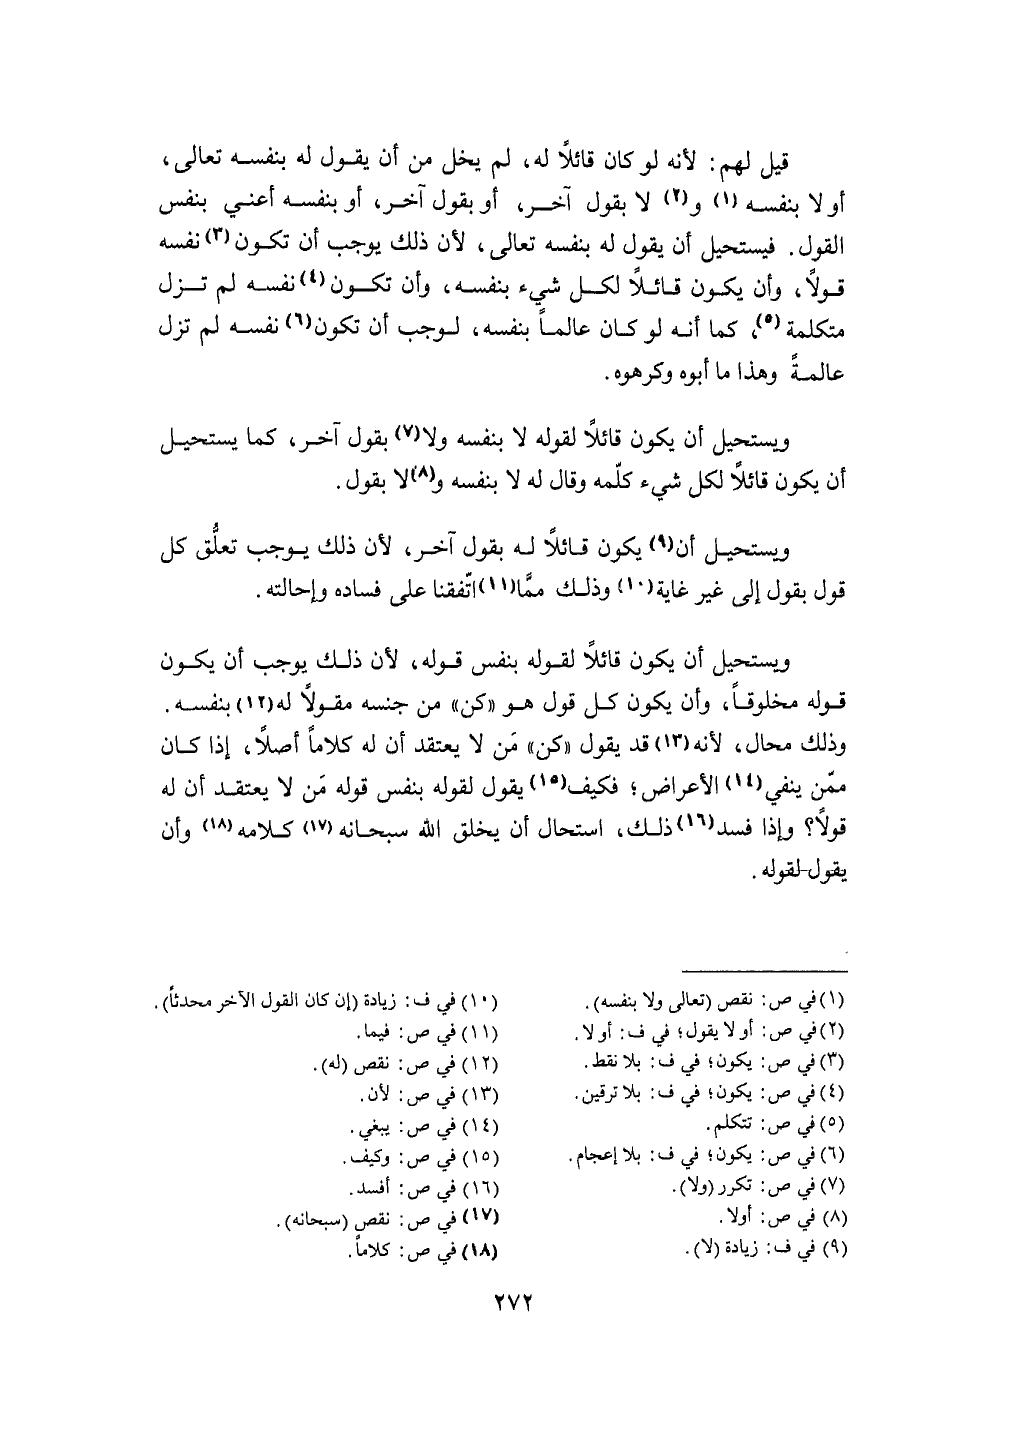 قيل لهم: لأنه لو كان قائلاً له، لم يخل من أن يقول له بنفسه تعالى،
أو لا بنفسه (١) و(٢) لا بقول آخر، أو بقول آخر، أو بنفسه أعني بنفس
القول. فيستحيل أن يقول له بنفسه تعالى، لأن ذلك يوجب أن تكون(٣) نفسه
قولاً، وأن يكون قائلاً لكل شيء بنفسه، وأن تكون(٤) نفسه لم تزل
متكلمة(٥)، كما أنه لو كان عالماً بنفسه، لوجب أن تكون(٦) نفسه لم تزل
عالمةً وهذا ما أبوه وكرهوه.
ويستحيل أن يكون قائلاً لقوله لا بنفسه ولا(٧) بقول آخر، كما يستحيل
أن يكون قائلاً لكل شيء كلّمه وقال له لا بنفسه و(٨)لا بقول.
ويستحيل أن(٩) يكون قائلاً له بقول آخر، لأن ذلك يوجب تعلُّق كل
قول بقول إلى غير غاية(١٠) وذلك ممَّا(١١) اتّفقنا على فساده وإحالته.
ويستحيل أن يكون قائلاً لقوله بنفس قوله، لأن ذلك يوجب أن يكون
قوله مخلوقاً، وأن يكون كل قول هو «كن» من جنسه مقولاً له(١٢) بنفسه.
وذلك محال، لأنه(١٣) قد يقول «كن» مَن لا يعتقد أن له كلاماً أصلاً، إذا كان
ممّن ينفي(١٤) الأعراض؛ فكيف(١٥) يقول لقوله بنفس قوله مَن لا يعتقد أن له
قولاً؟ وإذا فسد(١٦) ذلك، استحال أن يخلق الله سبحانه(١٧) كلامه(١٨) وأن
يقول لقوله.
(١) في ص: نقص (تعالى ولا بنفسه).
(٢) في ص: أو لا يقول؛ في ف: أو لا.
(٣) في ص: يكون؛ في ف: بلا نقط.
(٤) في ص: يكون؛ في ف: بلا ترقين.
(٥) في ص: تتكلم.
(٦) في ص: يكون؛ في ف: بلا إعجام.
(٧) في ص: تكرر (ولا).
(٨) في ص: أولا.
(٩) في ف: زيادة (لا).
(١٠) في ف: زيادة (إن كان القول الآخر محدثاً).
(١١) في ص: فيما.
(١٢) في ص: نقص (له).
(١٣) في ص: لأن.
(١٤) في ص: يبغي.
(١٥) في ص: وكيف.
(١٦) في ص: أفسد.
(١٧) في ص: نقص (سبحانه).
(١٨) في ص: كلاماً.
٢٧٢